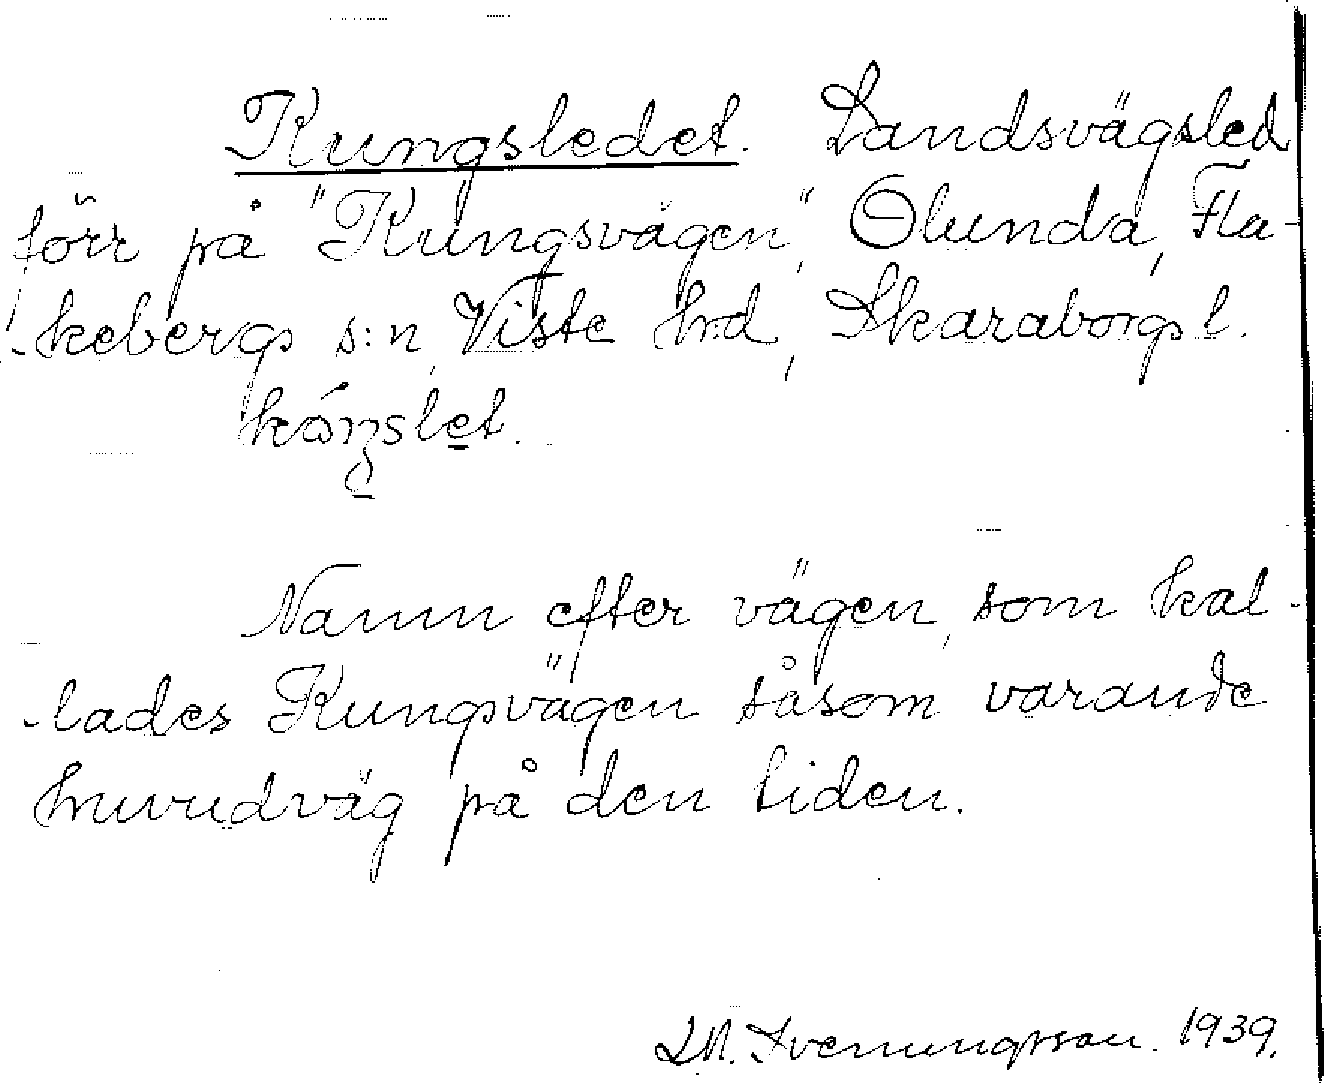 Kungsledet. Landsvägsled
förr på "Kungsvägen", Olunda, Fla-
kebergs s:n, Viste hrd, Skaraborgs l.

Namn efter vägen, som kal-
lades Kungsvägen såsom varande
huvudväg på den tiden.
Svenungsson. 1939.